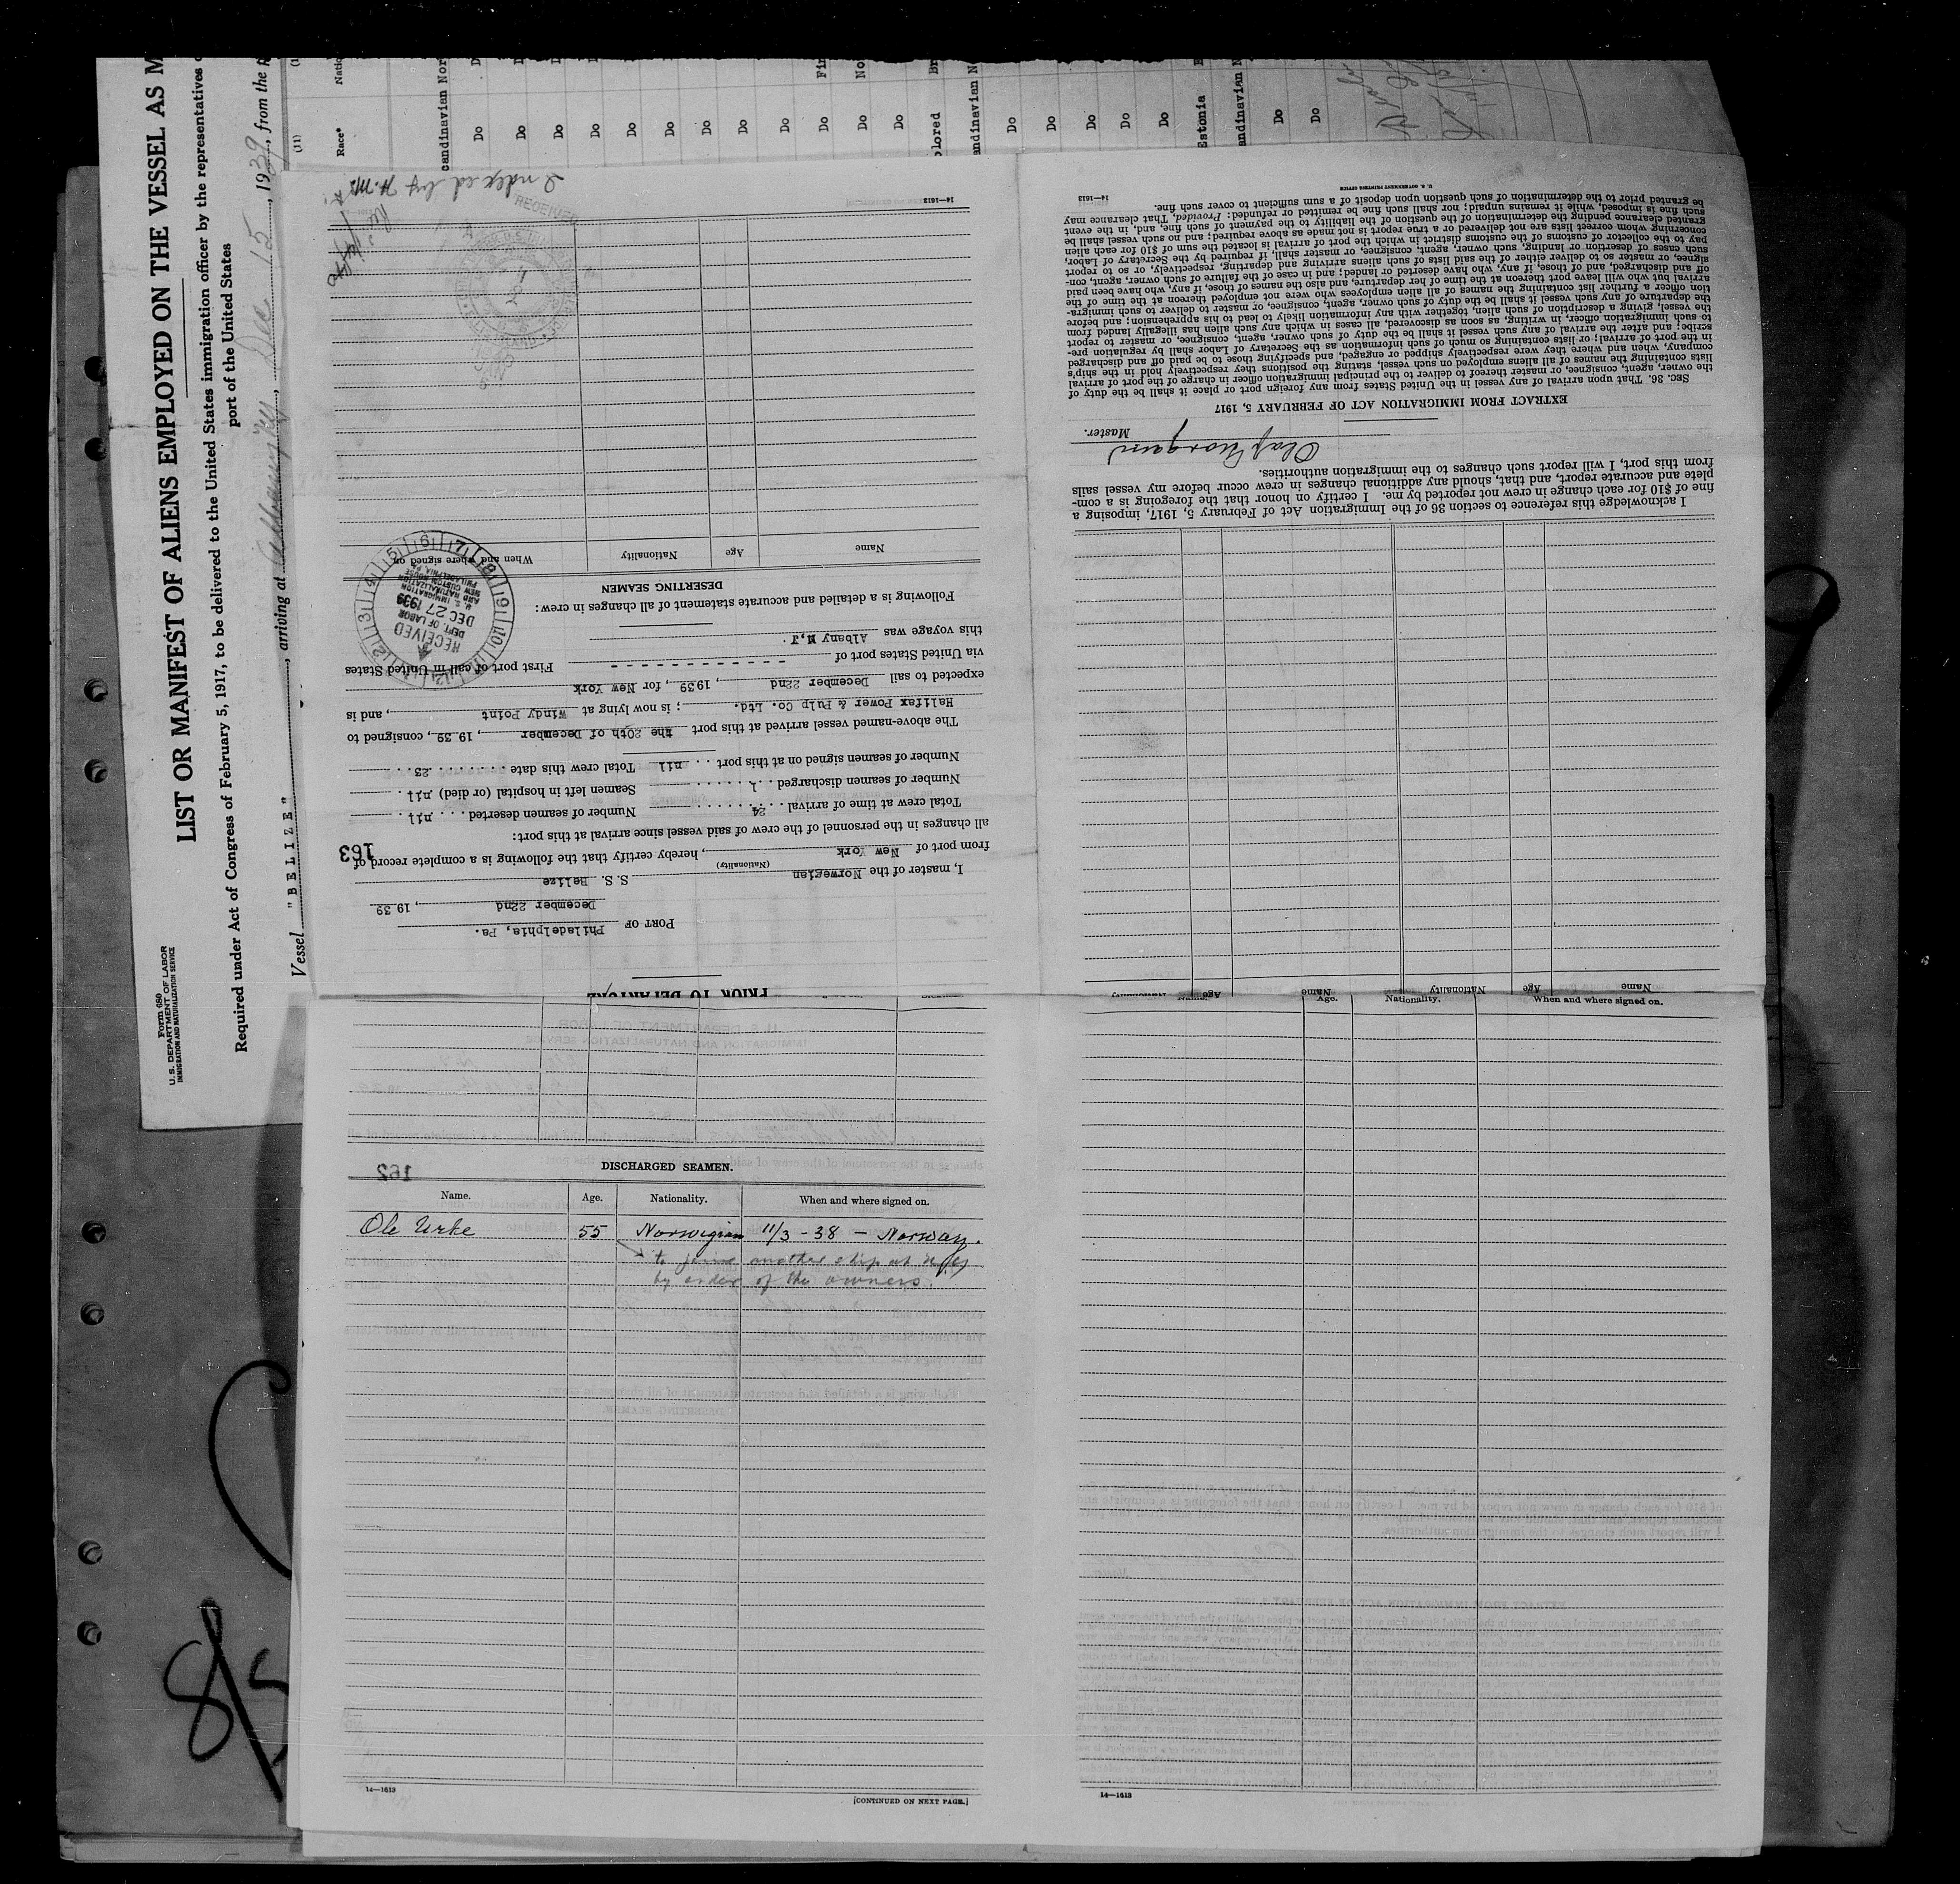 Form 680
U. S. DEPARTMENT OF LABOR
IMMIGRATION AND NATURALIZATION SERVICE
LIST OR MANIFEST OF ALIENS EMPLOYED ON THE VESSEL AS M
Required under Act of Congress of February 5, 1917, to be delivered to the United States immigration officer by the representatives
port of the United States
Vessel "BELIZE", arriving at Albany, Dec 15, 1939, from the
(11)
Race*
candinavian Nor
Do
Do
Do
Do
Do
Do
Do
Do
Do
Do
Do
Do
olored
andinavian
Do
Do
Do
Do
Do
Estonia
andinavian
Do
Do
PRIOR TO DEPARTURE
PORT OF Philadelphia, Pa.
December 22nd, 1939
I, master of the Norwegian S. S. Belize
(Nationality)
from port of New York, hereby certify that the following is a complete record of
163
all changes in the personnel of the crew of said vessel since arrival at this port:
Total crew at time of arrival 24 Number of seamen deserted nil
Number of seamen discharged 1 Seamen left in hospital (or died) nil
Number of seamen signed on at this port nil Total crew this date 23
The above-named vessel arrived at this port the 20th of December, 1939, consigned to
Halifax Power & Pulp Co. Ltd. ; is now lying at Windy Point, and is
expected to sail December 22nd, 1939, for New York
via United States port of - - - - - - - - - - - - First port of call in United States
this voyage was Albany N.J.
Following is a detailed and accurate statement of all changes in crew:
DESERTING SEAMEN
Name Age Nationality When and where signed on
RECEIVED
DEPT. OF LABOR
DEC 27 1939
U. S. IMMIGRATION
AND NATURALIZATION
NEW CUSTOM HOUSE
PHILADELPHIA, PA.
RECEIVED
14—1613
Indexed by H. M.
Name Age Nationality Name Age Nationality
I acknowledge this reference to section 36 of the Immigration Act of February 5, 1917, imposing a
fine of $10 for each change in crew not reported by me. I certify on honor that the foregoing is a com-
plete and accurate report, and that, should any additional changes in crew occur before my vessel sails
from this port, I will report such changes to the immigration authorities.
Master.
EXTRACT FROM IMMIGRATION ACT OF FEBRUARY 5, 1917
SEC. 36. That upon arrival of any vessel in the United States from any foreign port or place it shall be the duty of
the owner, agent, consignee, or master thereof to deliver to the principal immigration officer in charge of the port of arrival
lists containing the names of all aliens employed on such vessel, stating the positions they respectively hold in the ship's
company, when and where they were respectively shipped or engaged, and specifying those to be paid off and discharged
in the port of arrival; or lists containing so much of such information as the Secretary of Labor shall by regulation pre-
scribe; and after the arrival of any such vessel it shall be the duty of such owner, agent, consignee, or master to report
to such immigration officer, in writing, as soon as discovered, all cases in which any such alien has illegally landed from
the vessel, giving a description of such alien, together with any information likely to lead to his apprehension; and before
the departure of any such vessel it shall be the duty of such owner, agent, consignee, or master to deliver to such immigra-
tion officer a further list containing the names of all alien employees who were not employed thereon at the time of the
arrival but who will leave port thereon at the time of her departure, and also the names of those, if any, who have been paid
off and discharged, and of those, if any, who have deserted or landed; and in case of the failure of such owner, agent, con-
signee, or master so to deliver either of the said lists of such aliens arriving and departing, respectively, or so to report
such cases of desertion or landing, such owner, agent, consignee, or master shall, if required by the Secretary of Labor,
pay to the collector of customs of the customs district in which the port of arrival is located the sum of $10 for each alien
concerning whom correct lists are not delivered or a true report is not made as above required; and no such vessel shall be
granted clearance pending the determination of the question of the liability to the payment of such fine, and, in the event
such fine is imposed, while it remains unpaid; nor shall such fine be remitted or refunded: Provided, That clearance may
be granted prior to the determination of such question upon deposit of a sum sufficient to cover such fine.
14—1613
U. S. GOVERNMENT PRINTING OFFICE
162
DISCHARGED SEAMEN.
Name. Age. Nationality. When and where signed on.
Ole Urke 55 Norwegian 11/3 - 38 — Norway.
to join another ship at
by order of the owners.
14—1613
[CONTINUED ON NEXT PAGE.]
Age. Nationality. When and where signed on.
14—1613